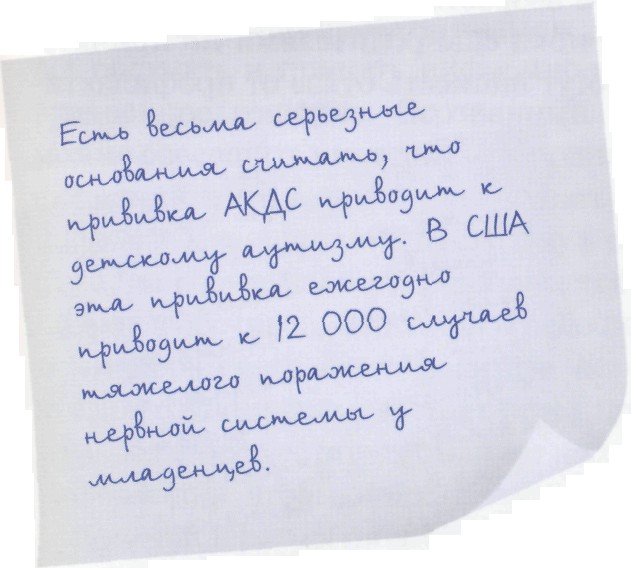 Есть весьма серьезные
основания считать, что
прививка АКДС приводит к
детскому аутизму. В США
эта прививка ежегодно
приводит к 12 000 случаев
тяжелого поражения
нервной системы у
младенцев.